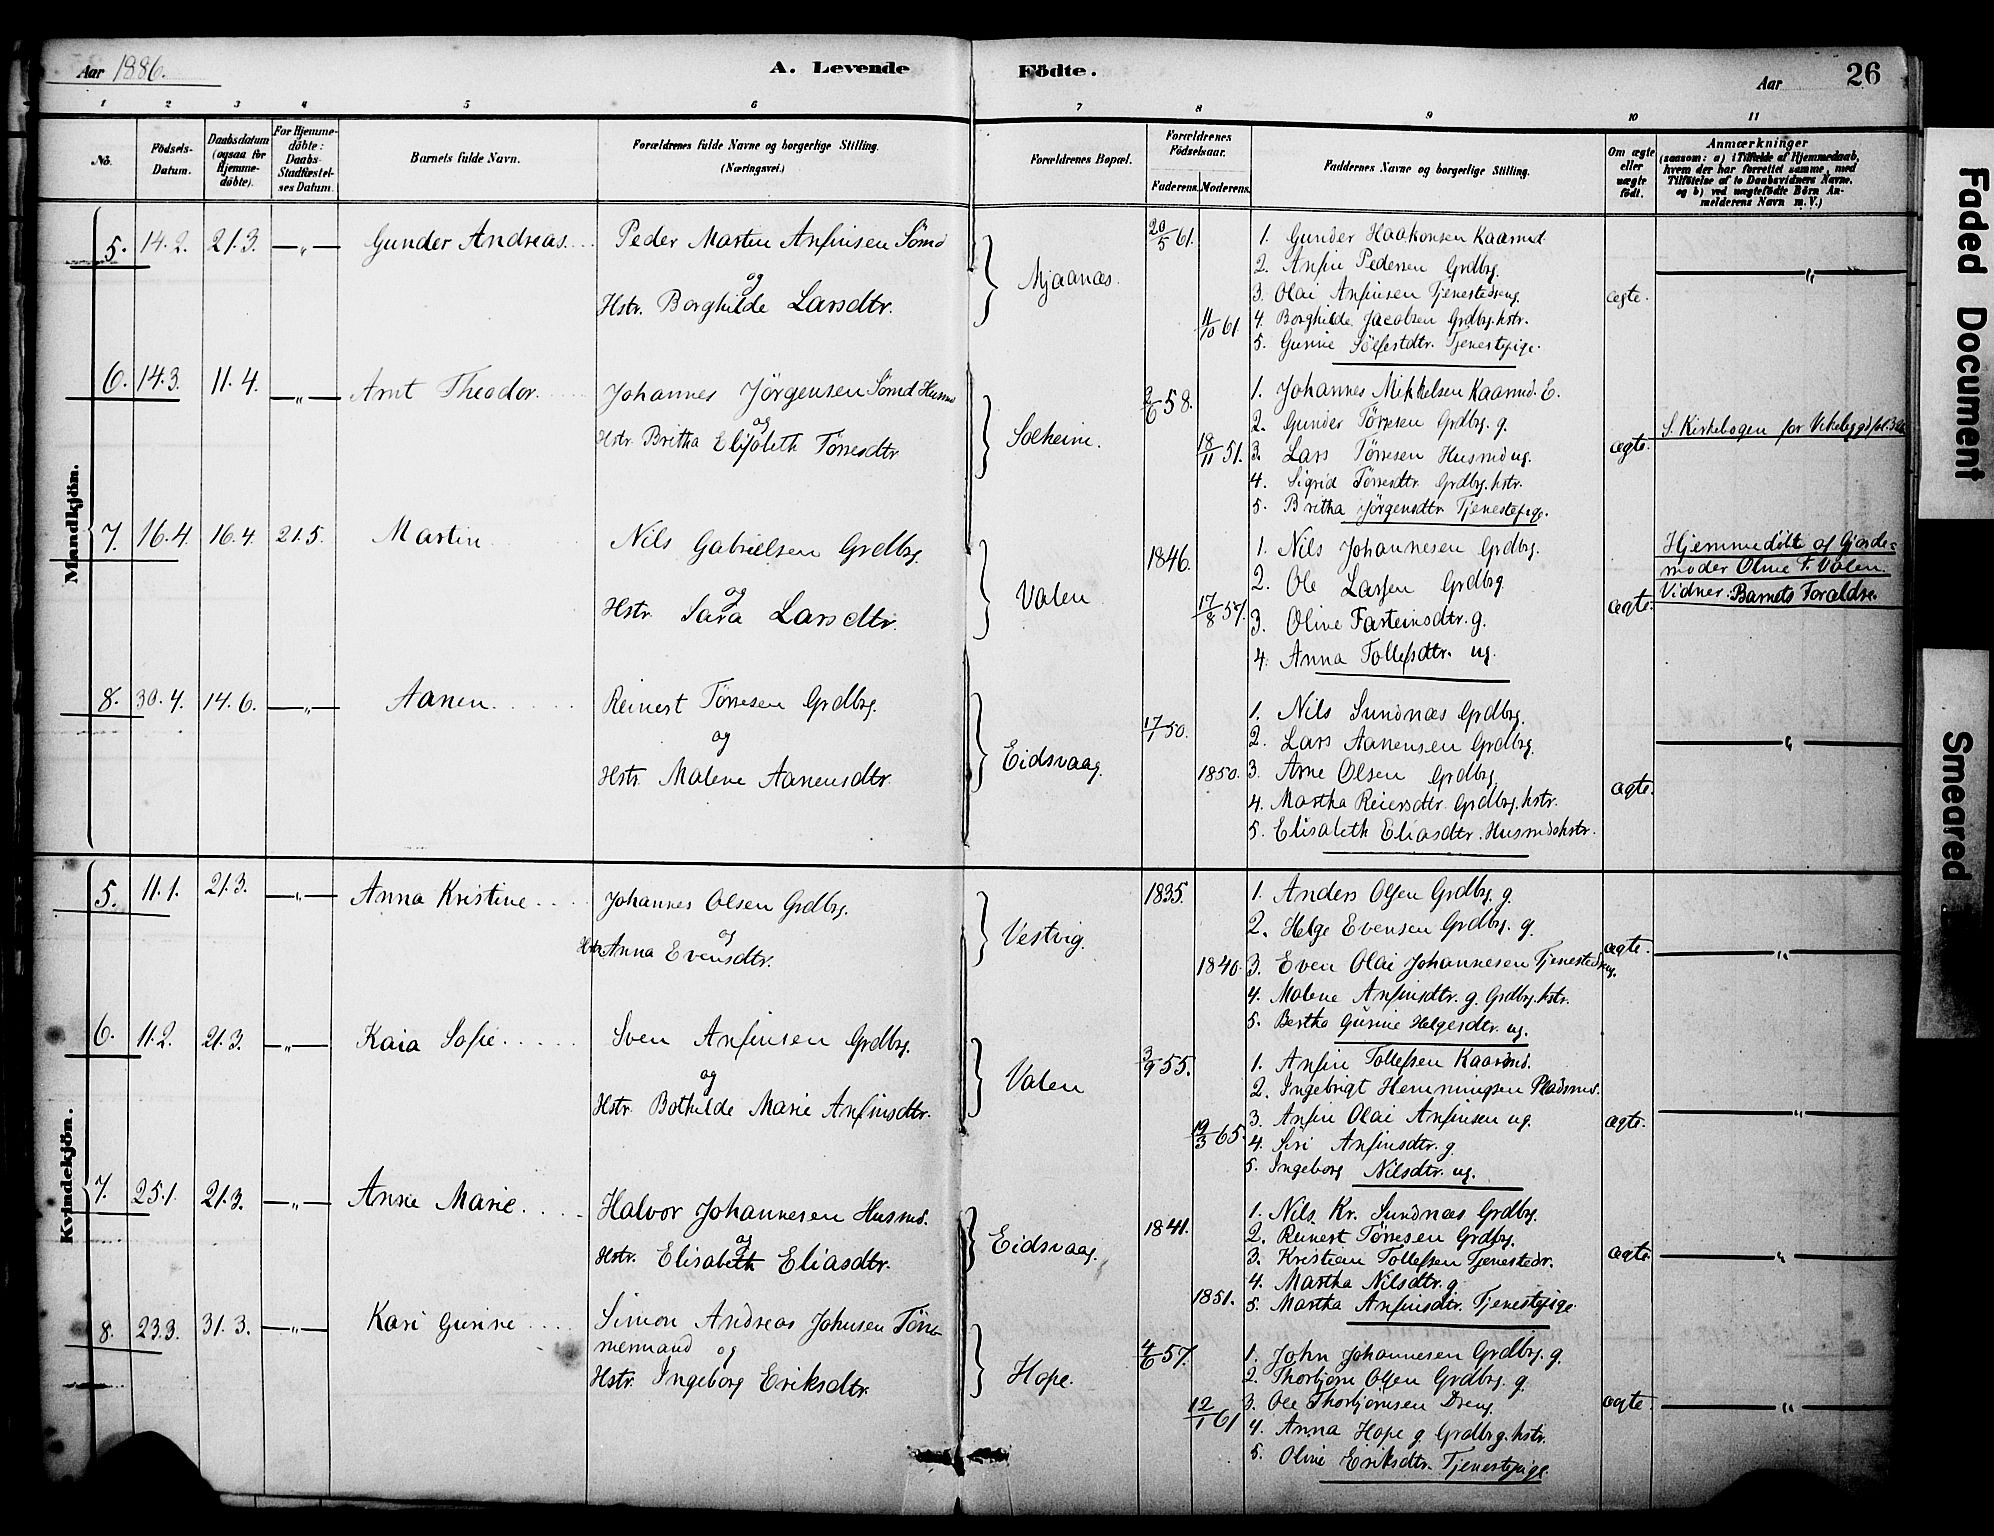 Aar 1886. A. Levende Födte. Aar 26
1 2 3 4 5 6 7 8 9 10 11
No. Födsels-Datum. Daabsdatum (ogsaa for Hjemme-döbte). For Hjemme-döbte: Daabs-Stadfæstel-ses Datum. Barnets fulde Navn. Forældrenes fulde Navne og borgerlige Stilling. (Næringsvei.) Forældrenes Bopæl. Forældrenes Födselsaar. Faderens. Moderens. Faddernes Navne og borgerlige Stilling. Om ægte eller uægte födt. Anmærkninger (saasom: a) i Tilfælde af Hjemmedaab, hvem der har forrettet samme, med Tilföielse af to Daabsvidners Navne, og b) ved uægtefödte Börn An-melderens Navn m. V.)
Mandkjön.
5. 14.2. 21.3. —„— Gunder Andreas. Peder Martin Anfinsen Sømd
og
Hstr. Borghilde Larsdtr.
Mjaanæs. 20/5 61. 11/10 61.
1. Gunder Haakonsen Kaarmd.
2. Anfin Pedersen Grdbrg.
3. Olai Anfinsen Tjenestedreng.
4. Borghilde Jacobsen Grdbrg.hstr.
5. Gurine Sölfestdtr. Tjenestepige.
ægte. „
6. 14.3. 11.4. —„— Arnt Theodor. Johannes Jörgensen Sømd Husmd
og
Hstr. Britha Elisabeth Tørresdtr
Solheim. 2/6 58. 18/11 51.
1. Johannes Mikkelsen Kaarmd. E.
2. Gunder Tørresen Grdbrg. g.
3. Lars Tørresen Husmd ug.
4. Sigrid Tørresdtr Grdbrg. hstr.
5. Britha Jörgensdtr Tjenestepige.
ægte. S. Kirkebogen for Vikebygd fol.
7. 16.4. 16.4. 21.5. Martin Nils Gabrielsen Grdbrg.
og
Hstr. Sara Larsdtr.
Valen 1846. 17/8 57.
1. Nils Johannesen Grdbrg.
2. Ole Larsen Grdbrg
3. Oline Farteinsdtr. g.
4. Anna Tollefsdtr. ug.
ægte. Hjemmedöbt af Gjorde-
moder Oline F. Valen.
Vidner: Barnets Foraldre.
8. 30.4. 14.6. —„— Aanen. Reinert Tørresen Grdbrg.
og
Hstr. Malene Aanensdtr.
Eidsvaag. 17/1 50. 1850.
1. Nils Sundnæs Grdbrg.
2. Lars Aanensen Grdbrg.
3. Arne Olsen Grdbrg.
4. Martha Reiersdtr. Grdbrg. hstr.
5. Elisabeth Eliasdtr. Husmdshstr.
ægte. „
Kvindekjön.
5. 11.1. 21.3. —„— Anna Kristine. Johannes Olsen Grdbrg.
og
Hstr. Anna Evensdtr.
Vestvig. 1835. 1840.
1. Anders Olsen Grdbrg. g.
2. Helge Evensen Grdbrg. g.
3. Even Olai Johannesen Tjenestedreng.
4. Malene Anfinsdtr. g. Grdbrg. hstr.
5. Bertha Gurine Helgesdtr. ug.
ægte. „
6. 11.2. 21.3. —„— Kaia Sofie. Sven Anfinsen Grdbrg.
og
Hstr. Bothilde Marie Anfinsdtr.
Valen 3/9 55. 19/3 65.
1. Anfin Tollefsen Kaarmd.
2. Ingebrigt Hemmingsen Pladsmd.
3. Anfin Olai Anfinsen ug.
4. Siri Anfinsdtr. g
5. Ingeborg Nilsdtr. ug.
ægte. „
7. 25.1. 21.3. —„— Anne Marie. Halvor Johannesen Husmd.
og
Hstr. Elisabeth Eliasdtr.
Eidsvaag. 1841. 1851.
1. Nils Kr. Sundnæs Grdbrg.
2. Reinert Tørresen Grdbrg.
3. Kristian Tollefsen Tjenestedr.
4. Martha Nilsdtr. g
5. Martha Anfinsdtr. Tjenestepige.
ægte. „
8. 23.3. 31.3. —„— Kari Gurine Simon Andreas Johnsen Töm-
mermand og
Hstr. Ingeborg Eriksdtr.
Hope. 4/6 57. 12/1 61
1. John Johannesen Grdbrg. g.
2. Thorbjörn Olsen Grdbrg. g.
3. Ole Thorbjörnsen Dreng.
4. Anna Hope g Grdbrg. hstr.
5. Oline Eriksdtr. Tjenestepige.
ægte. „
Faded Document
Smeared